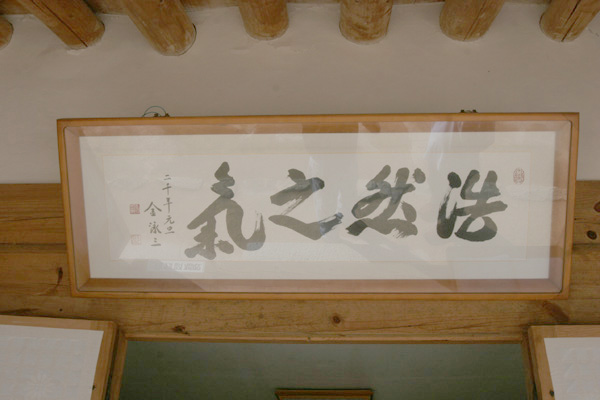 浩然之氣
二千年元旦
金泳三